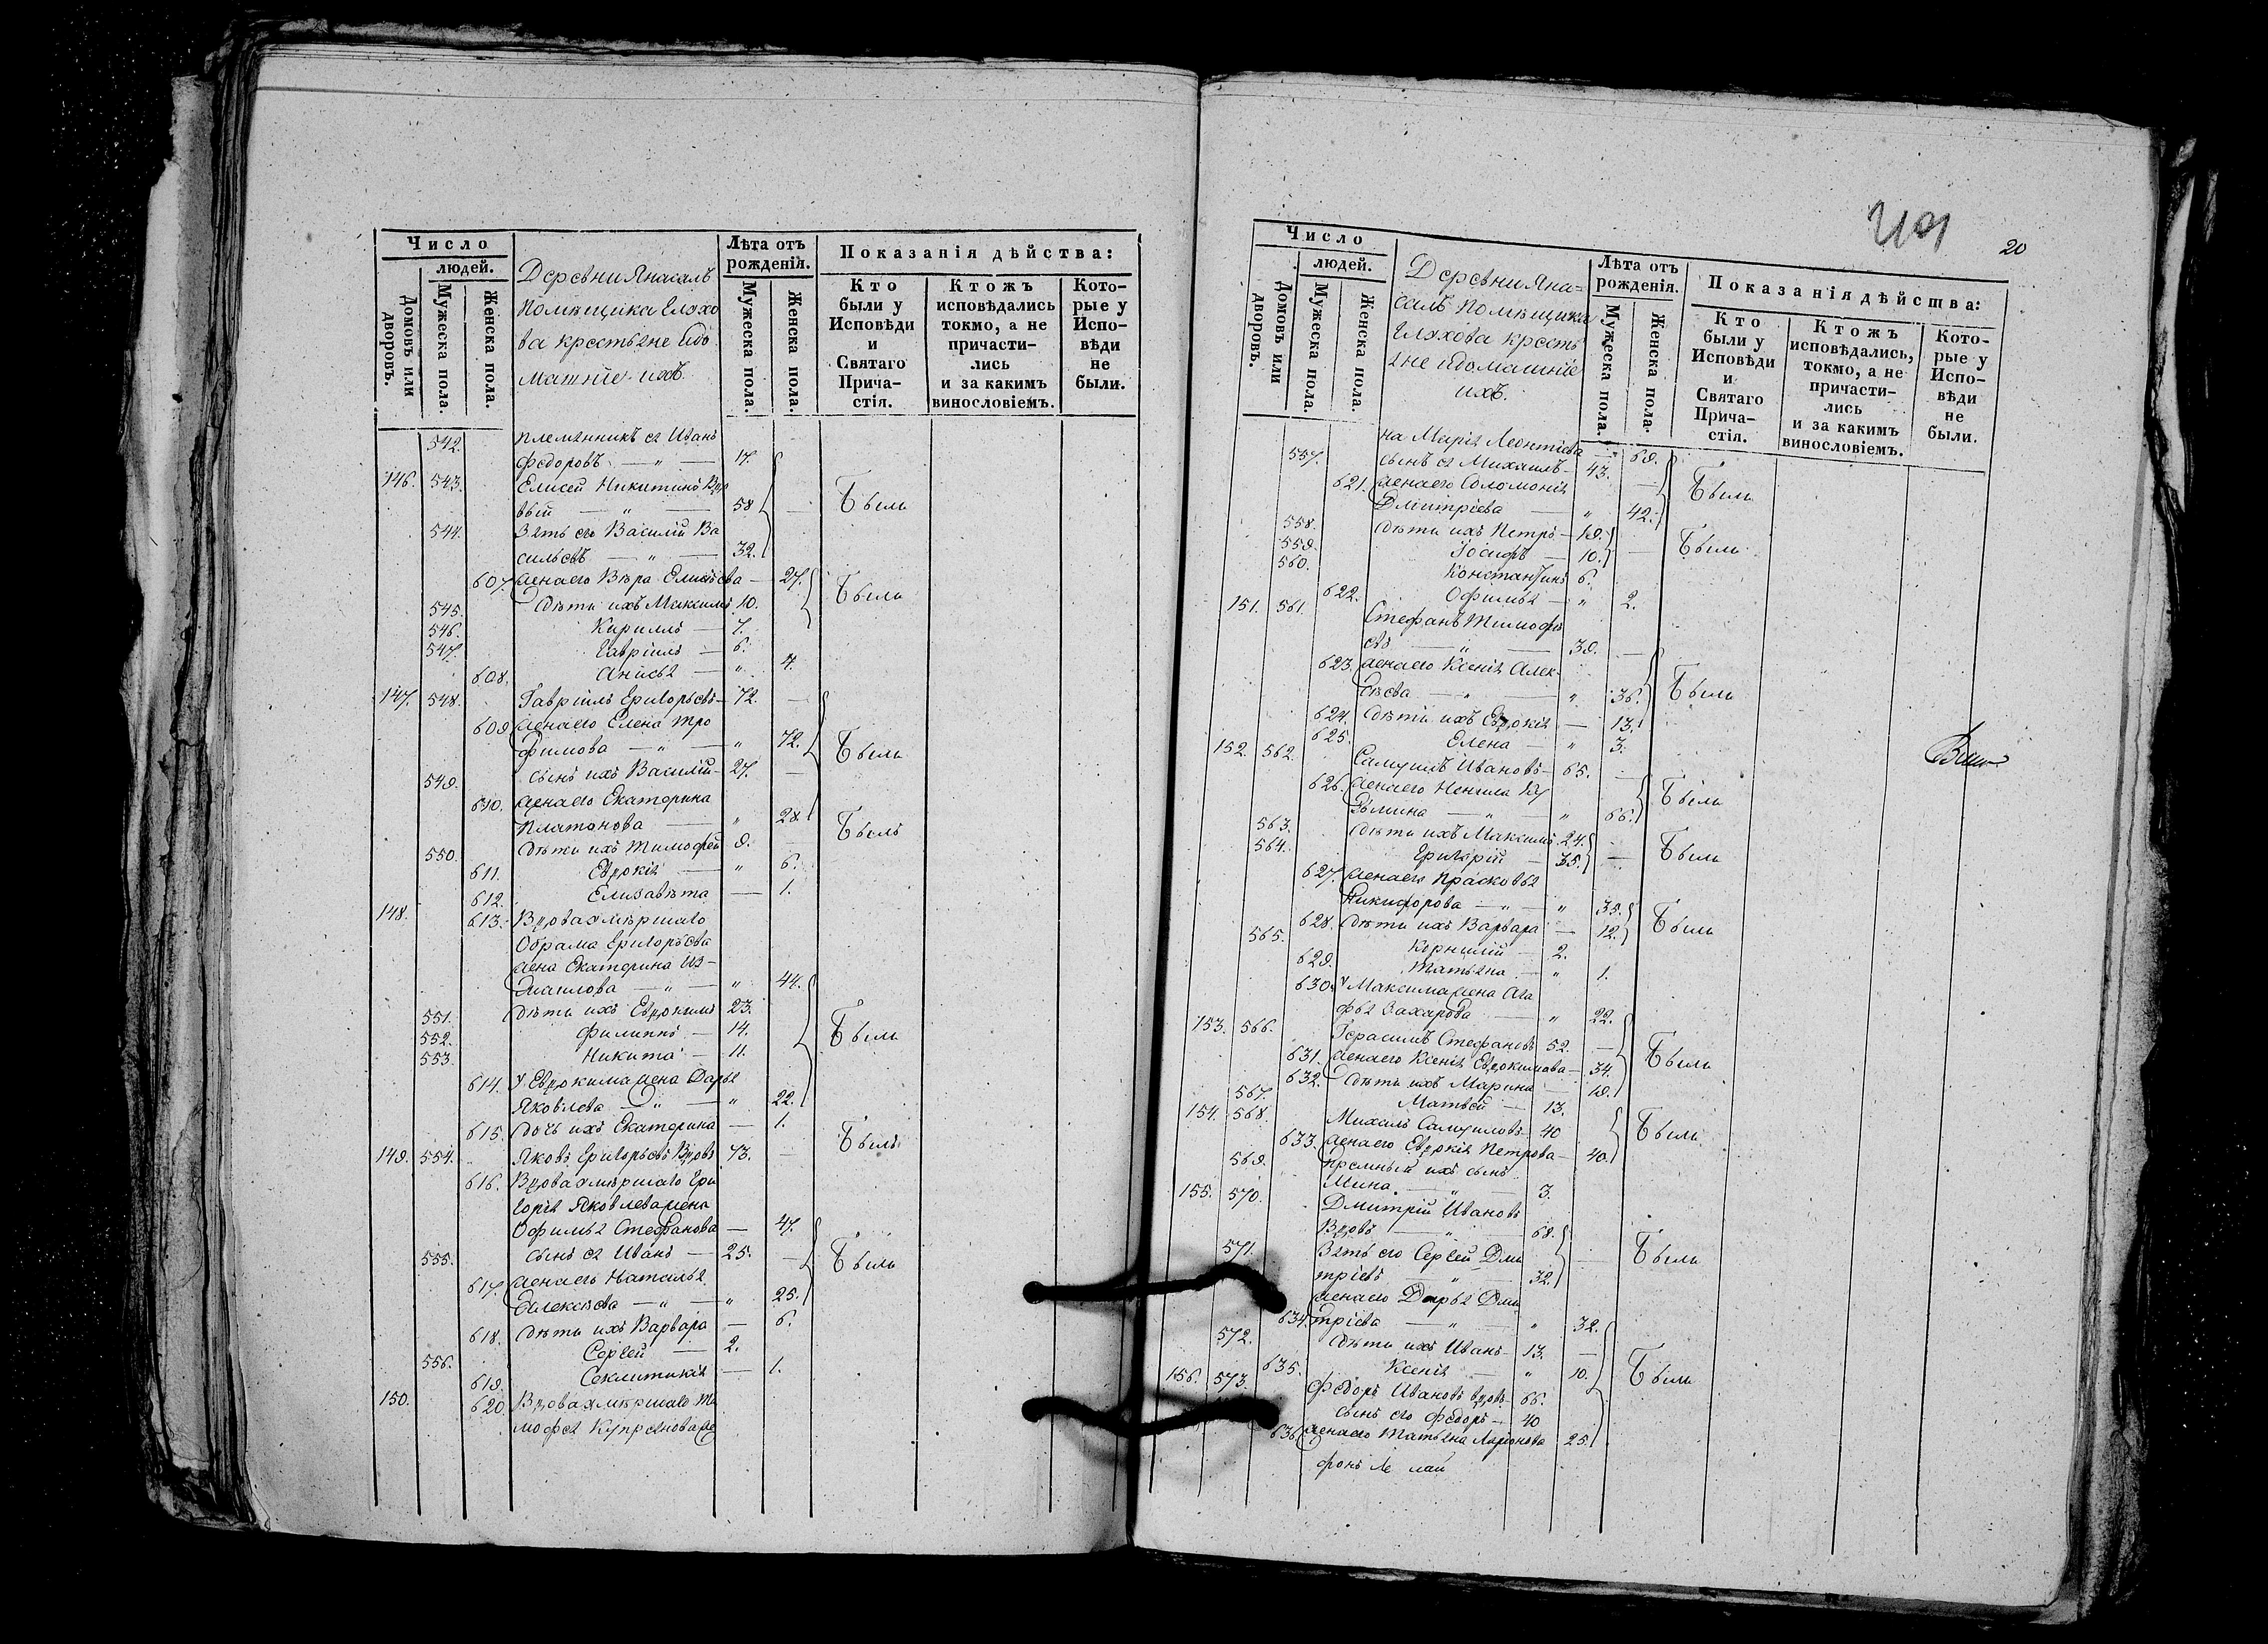 Число
людей.
Домовъ или дворовъ.
Мужеска пола.
Женска пола.
Деревни Янасалъ
Помѣщика Еляхо
ва крестьяне идо
машніе ихъ
Лѣта отъ
рожденія.
Мужеска пола.
Женска пола.
Показанія дѣйства:
Кто
были у
Исповѣди
и
Святаго
Прича-
стія.
Ктожъ
исповѣдались
токмо, а не
причасти-
лись
и за какимъ
винословіемъ.
Кото-
рые у
Испо-
вѣди
не
были.
542. племянникъ ея Иванъ
Федоровъ — " — 17.
146. 543. Елисей Никитинъ Вдо
вый — " — 58 — Были
544. Зять его Василій Ва
сильевъ — " — 32.
607. Жена его Вѣра Елисѣева — 27.
545. Дѣти ихъ Максимъ 10. Были
546. Кириллъ — 7.
547. Гавріилъ — 6.
608. Анисья — " 4.
147. 548. Гавріилъ Григорьевъ — 72. —
609 Жена его Елена Тро
фимова — " — " 72. Были
549. Сынъ ихъ Василій — 27. —
610. Жена его Екатерина
Платонова — " 28 Были
550. Дѣти ихъ Тимофей 9. —
611. Евдокія — " 6.
612. Елизавѣта — 1.
148. 613. Вдова умѣршаго
Обрама Григорьева
жена Екатерина Из-
маилова — " — " 44.
551. Дѣти ихъ Евдокимъ 23.
552. Филиппъ — 14. Были
553 Никита — 11.
614. У Евдокима жена Дарья
Яковлева — " — " 22.
615. Дочь ихъ Екатерина — 1. Были
149. 554. Яковъ Григорьевъ Вдовъ 73. —
616. Вдова умѣршаго Гри
горія Яковлева жена
Офимья Стефанова — 47.
555. Сынъ ея Иванъ — 25. — Были
617. Жена его Наталья
Алексѣева — " — " 25.
618. Дѣти ихъ Варвара — 6.
556. Сергей — 2.
619. Секлитикія — 1.
150. 620. Вдова умѣршаго Ти
мофея Купреянова же
20
Число
людей.
Домовъ или дворовъ.
Мужеска пола.
Женска пола.
Деревни Яна=
салъ Помѣщика
Еляхова кресть
яне идомашніе
ихъ.
Лѣта отъ
рожденія.
Мужеска пола.
Женска пола.
Показанія дѣйства:
Кто
были у
Исповѣди
и
Святаго
Прича-
стія.
Ктожъ
исповѣдались,
токмо, а не
причасти-
лись
и за какимъ
винословіемъ.
Кото-
рые у
Испо-
вѣди
не
были.
на Марія Леонтіева — 69.
557. сынъ ея Михаилъ — 43. — Были
621. Жена его Соломонія
Дмитріева — " 42.
558. Дѣти ихъ Петръ — 19. Были
559. Іосифъ — 10. —
560. Константинъ 6.
622. Офимья — " 2.
151. 561. Стефанъ Тимофѣ
евъ — " — 39. —
623. Жена его Ксенія Алек-
сѣева — " — " 36. Были
624. Дѣти ихъ Евдокія — 13.
625. Елена — " 3.
152. 562. Самуилъ Ивановъ — 65. —
626. Жена его Ненила Ку
зьмина — " — " 66. Были
563. Дѣти ихъ Максимъ 24. Были
564. Григорій — 35. —
627. Жена его Прасковья
Никифорова — " — " 35.
628. Дѣти ихъ Варвара — 12. Были
565. Корнилій — 2.
629. Татьяна — " 1.
630. У Максима жена Ага
фья Захарова — " 22.
153. 566. Герасимъ Стефановъ 52. — Были
631. Жена его Ксенія Евдокимова — 34.
632. Дѣти ихъ Марина — 19.
567. Матвей — 13.
154. 568. Михаилъ Самуиловъ — 40 Были
633. Жена его Евдокія Петрова — 40.
569. Пріемный ихъ сынъ
Мина — " — 3.
155. 570. Дмитрій Ивановъ
Вдовъ — " — 68. Были
571. Зять его Сергей Дми
тріевъ — " — 32.
Жена его Дарья Дми
634. тріева — " — " 32.
572. Дѣти ихъ Иванъ — 13. —
635. Ксенія — " 10. Были
156. 573. Федоръ Ивановъ вдовъ 66.
сынъ его Федоръ — 40
636. Жена его Татьяна Ларіонова 25.